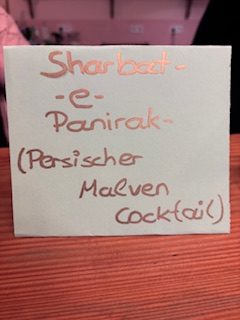 Sharbat-
-e-
Panirak-
(Persischer
Malven
Cocktail)